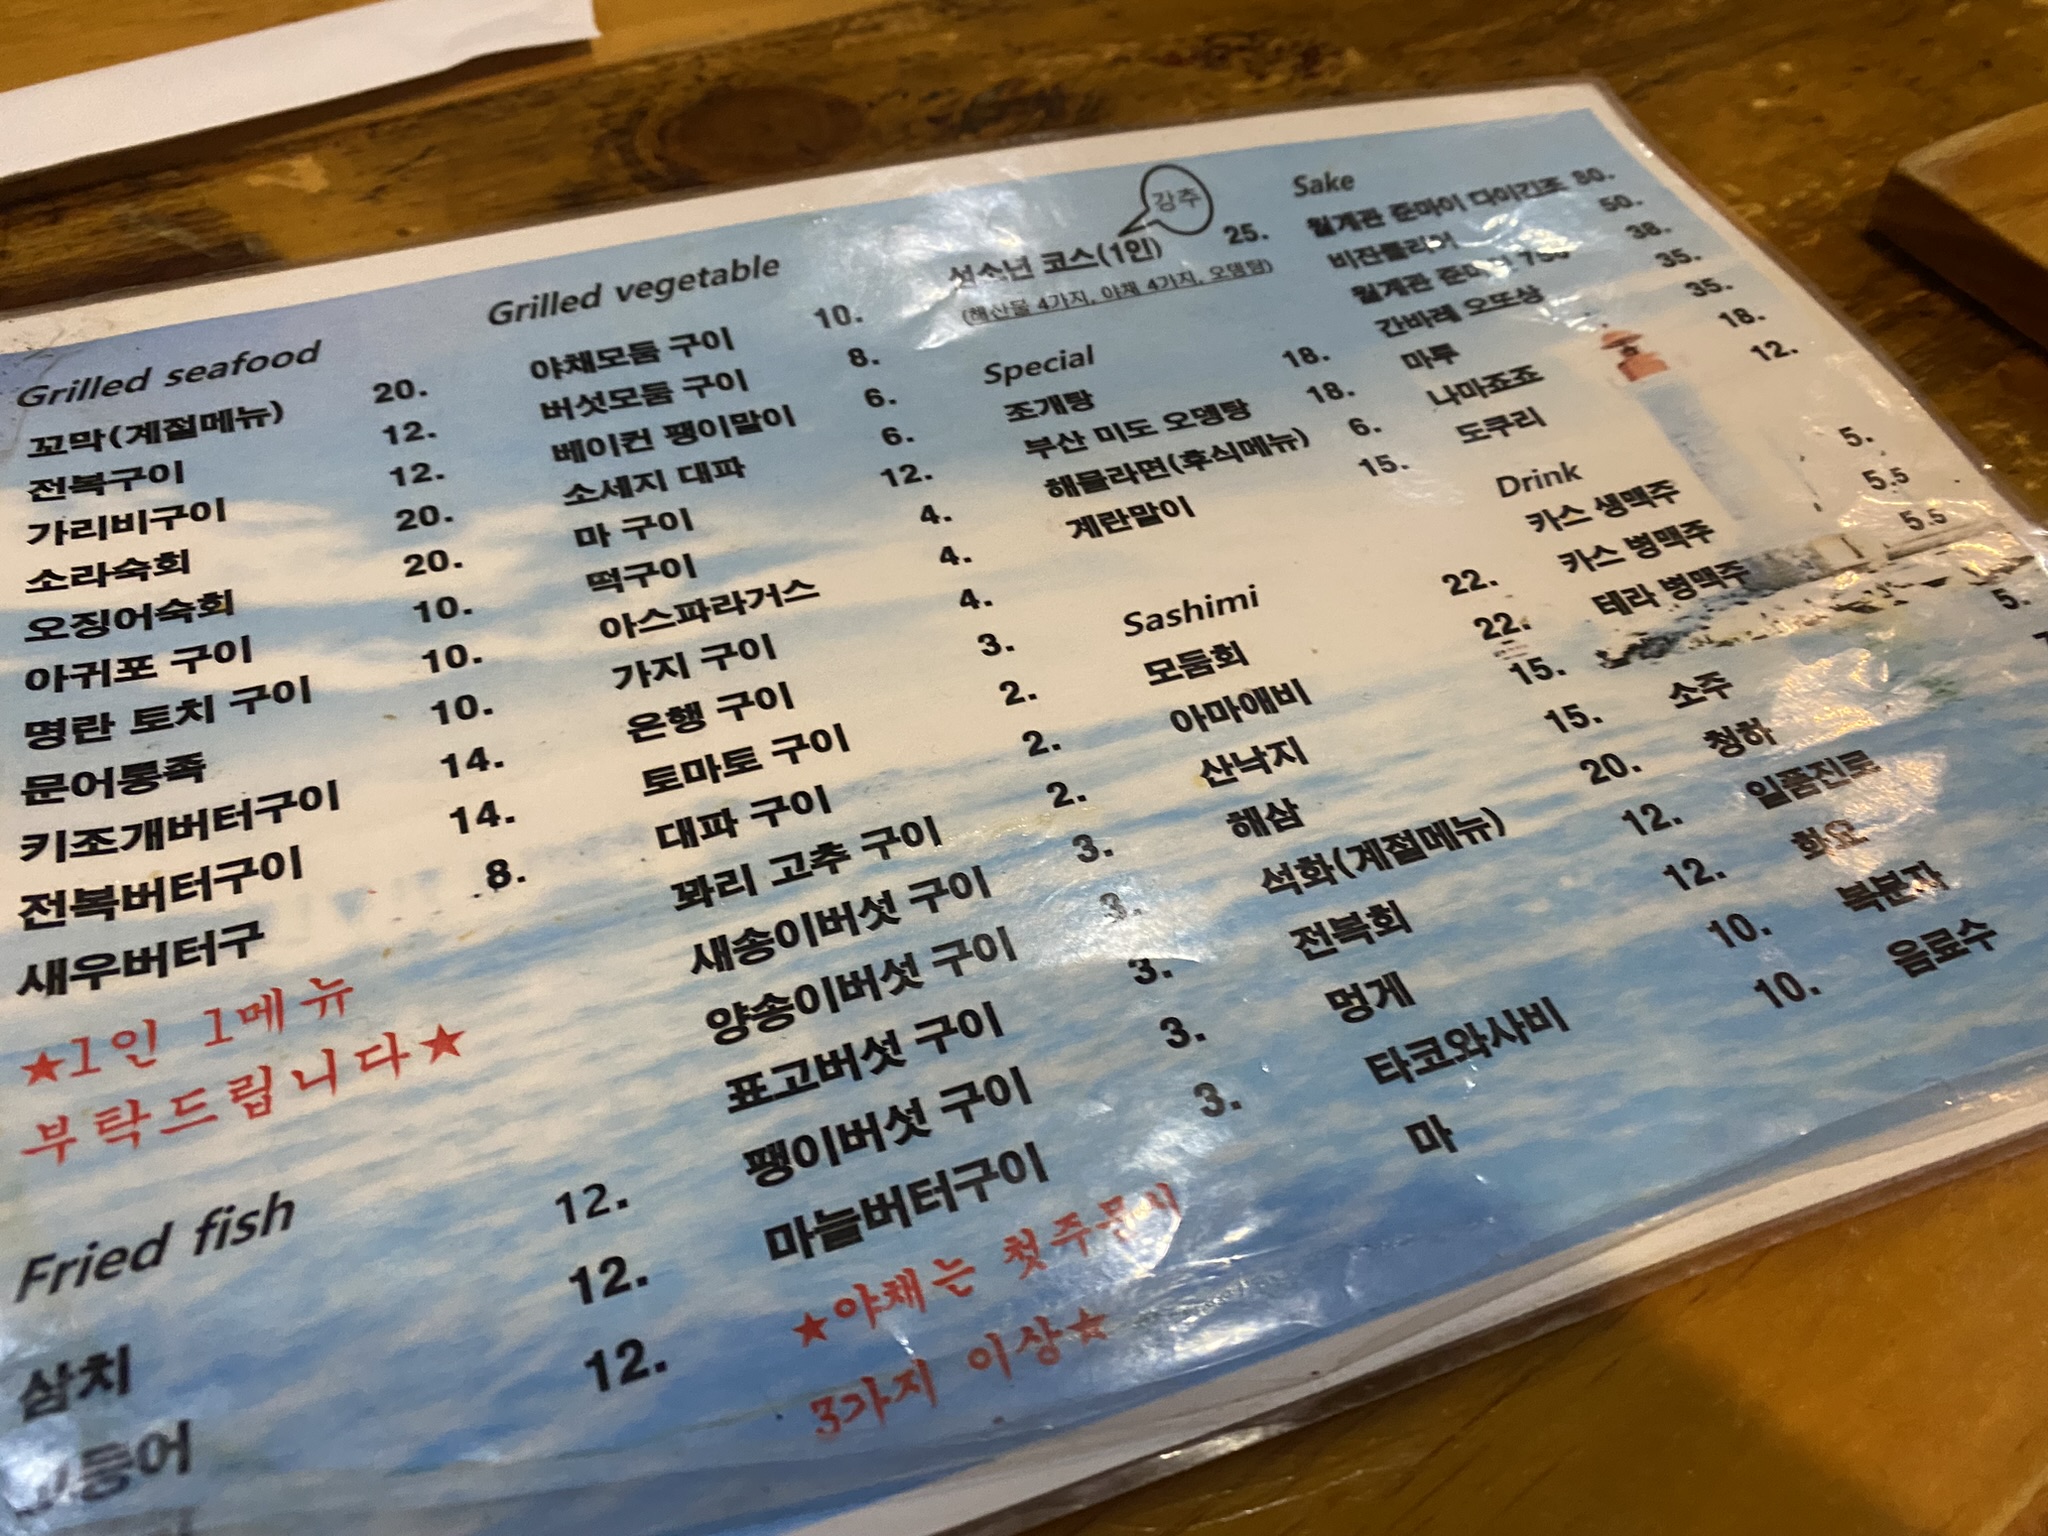 Grilled seafood
꼬막(계절메뉴) 20.
전복구이 12.
가리비구이 12.
소라숙회 20.
오징어숙회 20.
아귀포 구이 10.
명란 토치 구이 10.
문어통족 10.
키조개버터구이 14.
전복버터구이 14.
새우버터구 8.
★1인 1메뉴
부탁드립니다★
Fried fish 
삼치 12.
12.
12.
Grilled vegetable
야채모둠 구이 10.
버섯모둠 구이 8.
베이컨 팽이말이 6.
소세지 대파 6.
마 구이 12.
떡구이 4.
아스파라거스 4.
가지 구이 4.
은행 구이 3.
토마토 구이 2.
대파 구이 2.
꽈리 고추 구이 2.
새송이버섯 구이 3.
양송이버섯 구이 3.
표고버섯 구이 3.
팽이버섯 구이 3.
마늘버터구이 3.
★야채는 첫주문시
3가지 이상★
강추
섬소년 코스(1인) 25.
(해산물 4가지, 야채 4가지, 오뎅탕)
Special
조개탕 18.
부산 미도 오뎅탕 18.
해물라면(후식메뉴) 6.
계란말이 15.
Sashimi
모둠회 22.
아마애비 22.
산낙지 15.
해삼 15.
석화(계절메뉴) 20.
전복회 12.
멍게 12.
타코와사비 10.
마 10.
Sake
월계관 준마이 다이긴조 80.
비잔클리어 50.
월계관 준마이 750 38.
간바레 오또상 35.
마루 35.
나마죠죠 18.
도쿠리 12.
Drink
카스 생맥주 5.
카스 병맥주 5.5
테라 병맥주 5.5
소주 5.
청하
일품진로
화요
복분자
음료수